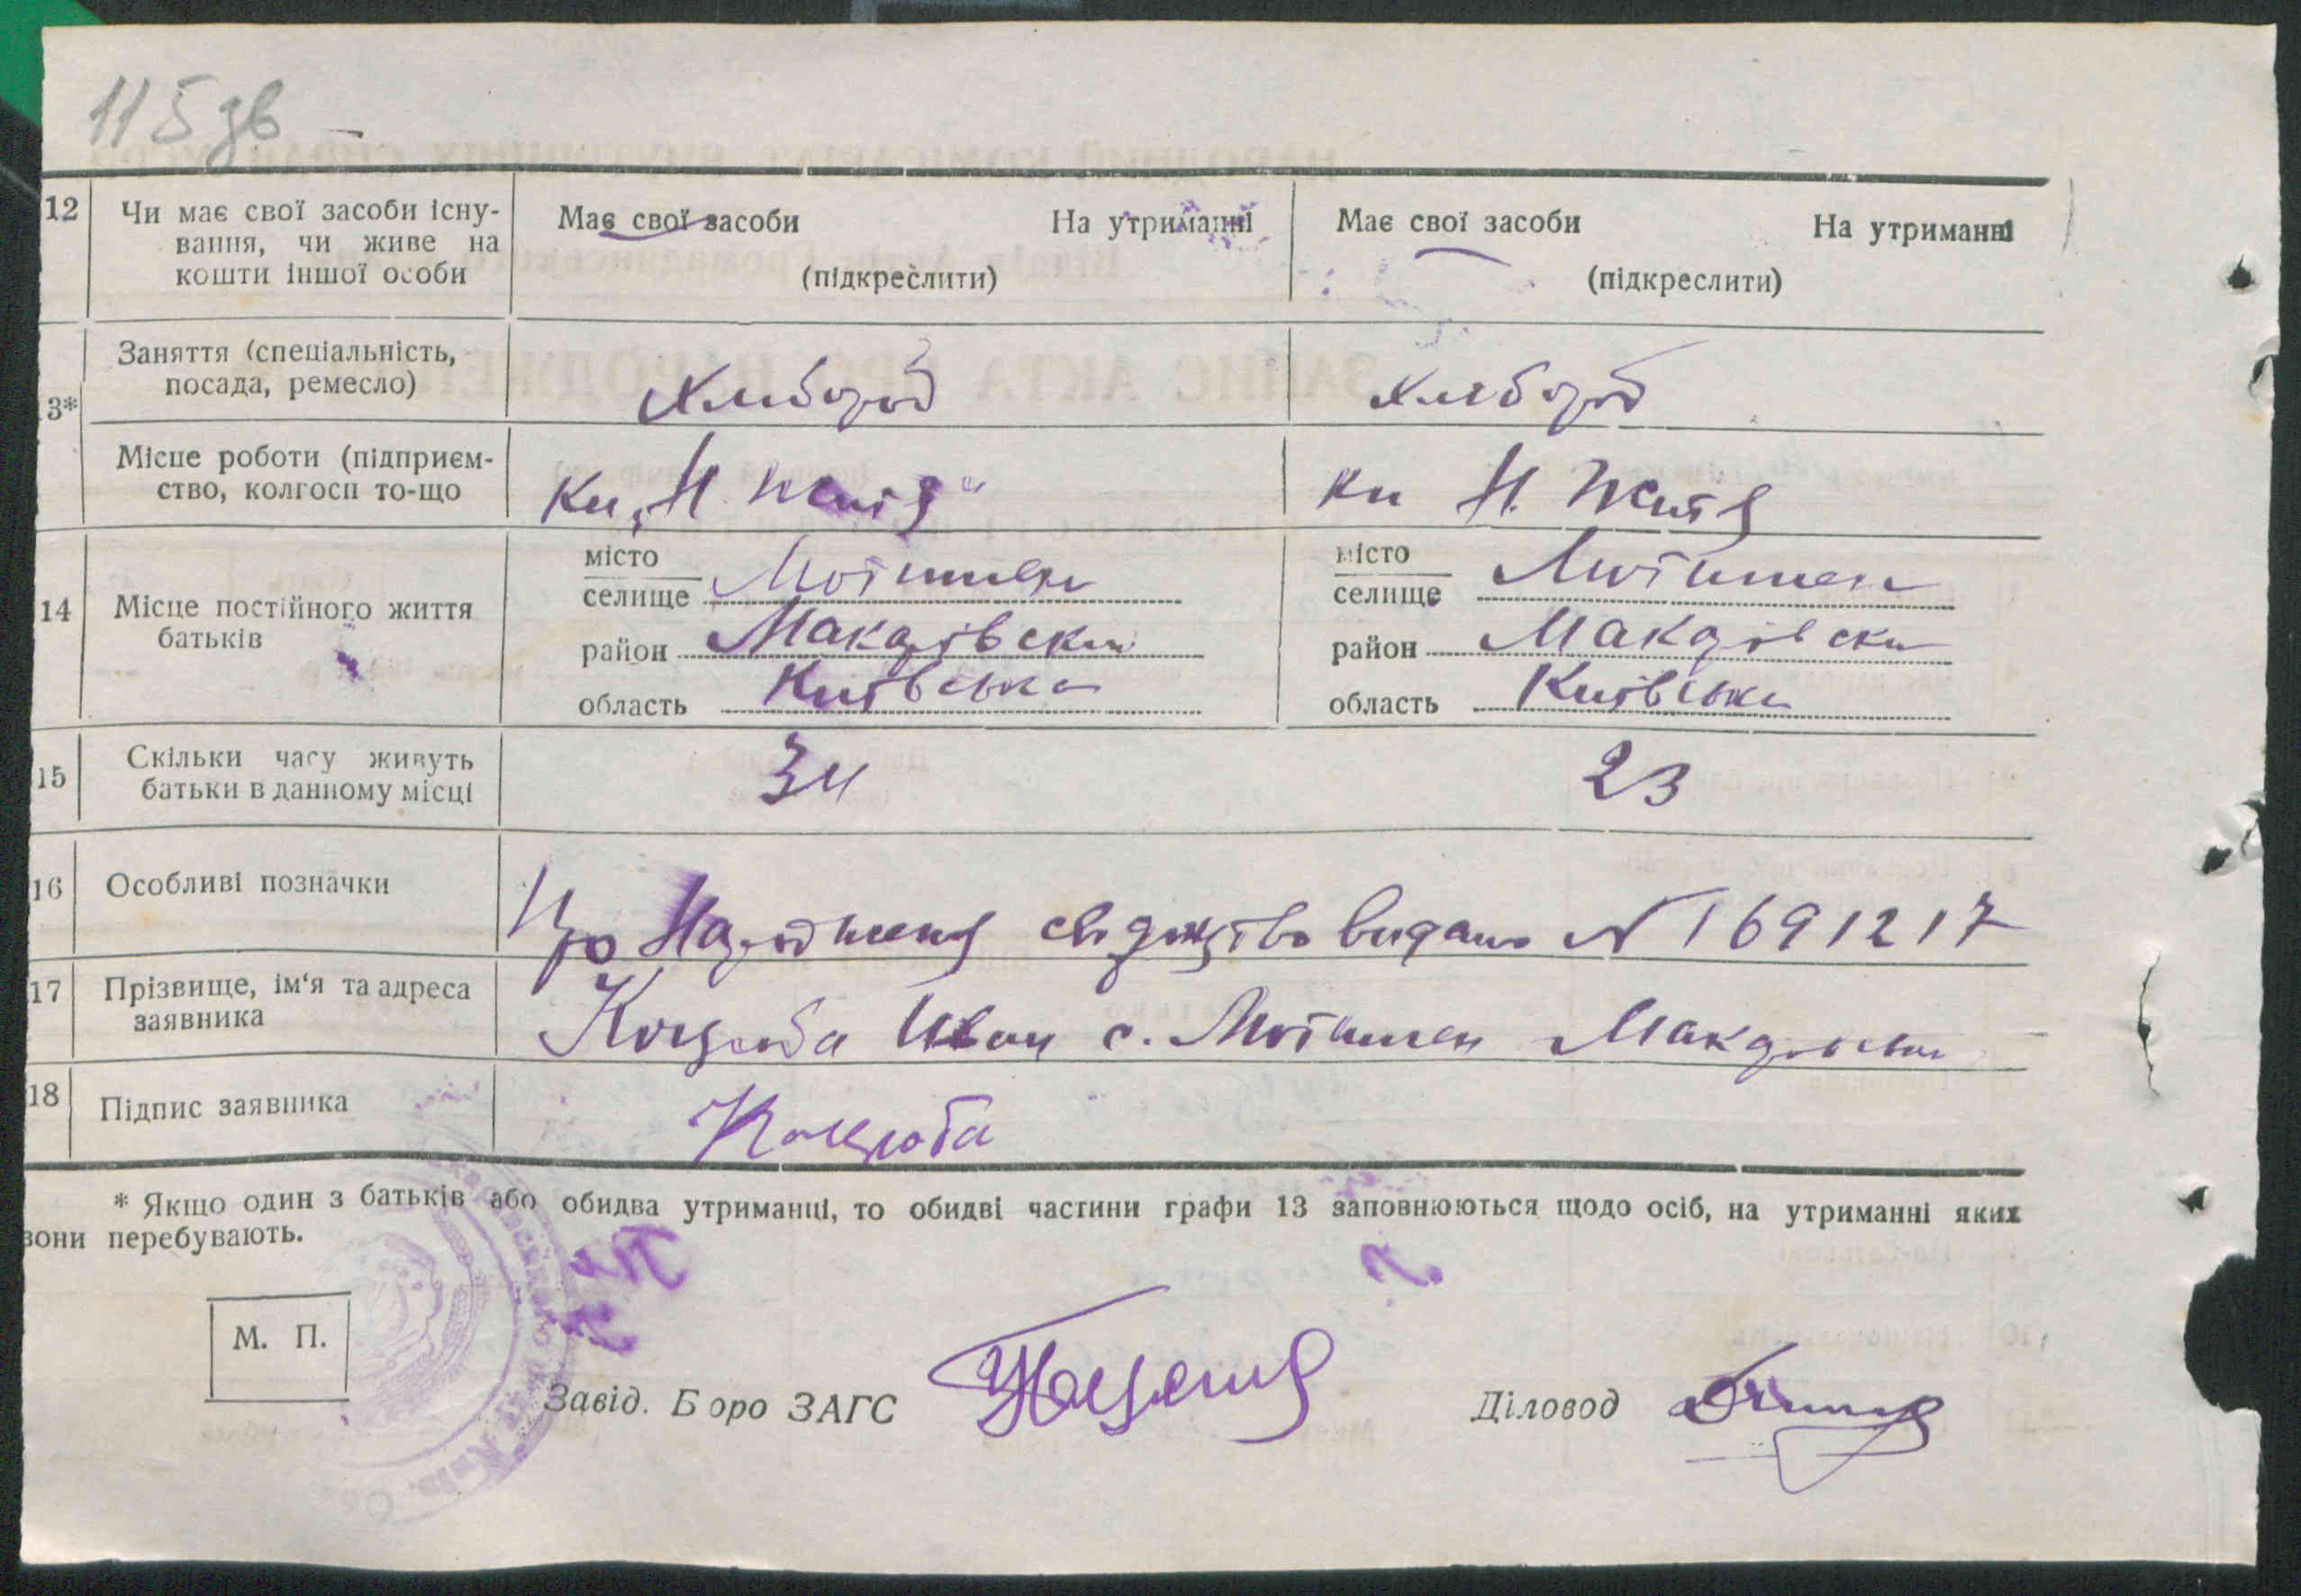 115 зв
12 Чи має свої засоби існу- Має свої засоби На утриманні Має свої засоби На утриманні
вання, чи живе на
кошти іншої особи (підкреслити) (підкреслити)
Заняття (спеціальність,
посада, ремесло) Хлібороб Хлібороб
3*
Місце роботи (підприєм-
ство, колгосп то-що Кп „Н. Життя“ Кп Н. Життя
місто місто
селище Мотижен селище Мотижен
14 Місце постійного життя
батьків район Макарівськи район Макарівськи
область Київська область Київська
15 Скільки часу живуть
батьки в данному місці 34 23
16 Особливі позначки
Про Народження свідоцтво видано N 1691217
17 Прізвище, ім‘я та адреса
заявника Коцюба Иван с. Мотижен
18 Підпис заявника Коцюба
* Якщо один з батьків або обидва утриманці, то обидві частини графи 13 заповнюються щодо осіб, на утриманні яких
вони перебувають.
М. П.
Завід. Бюро ЗАГС Діловод